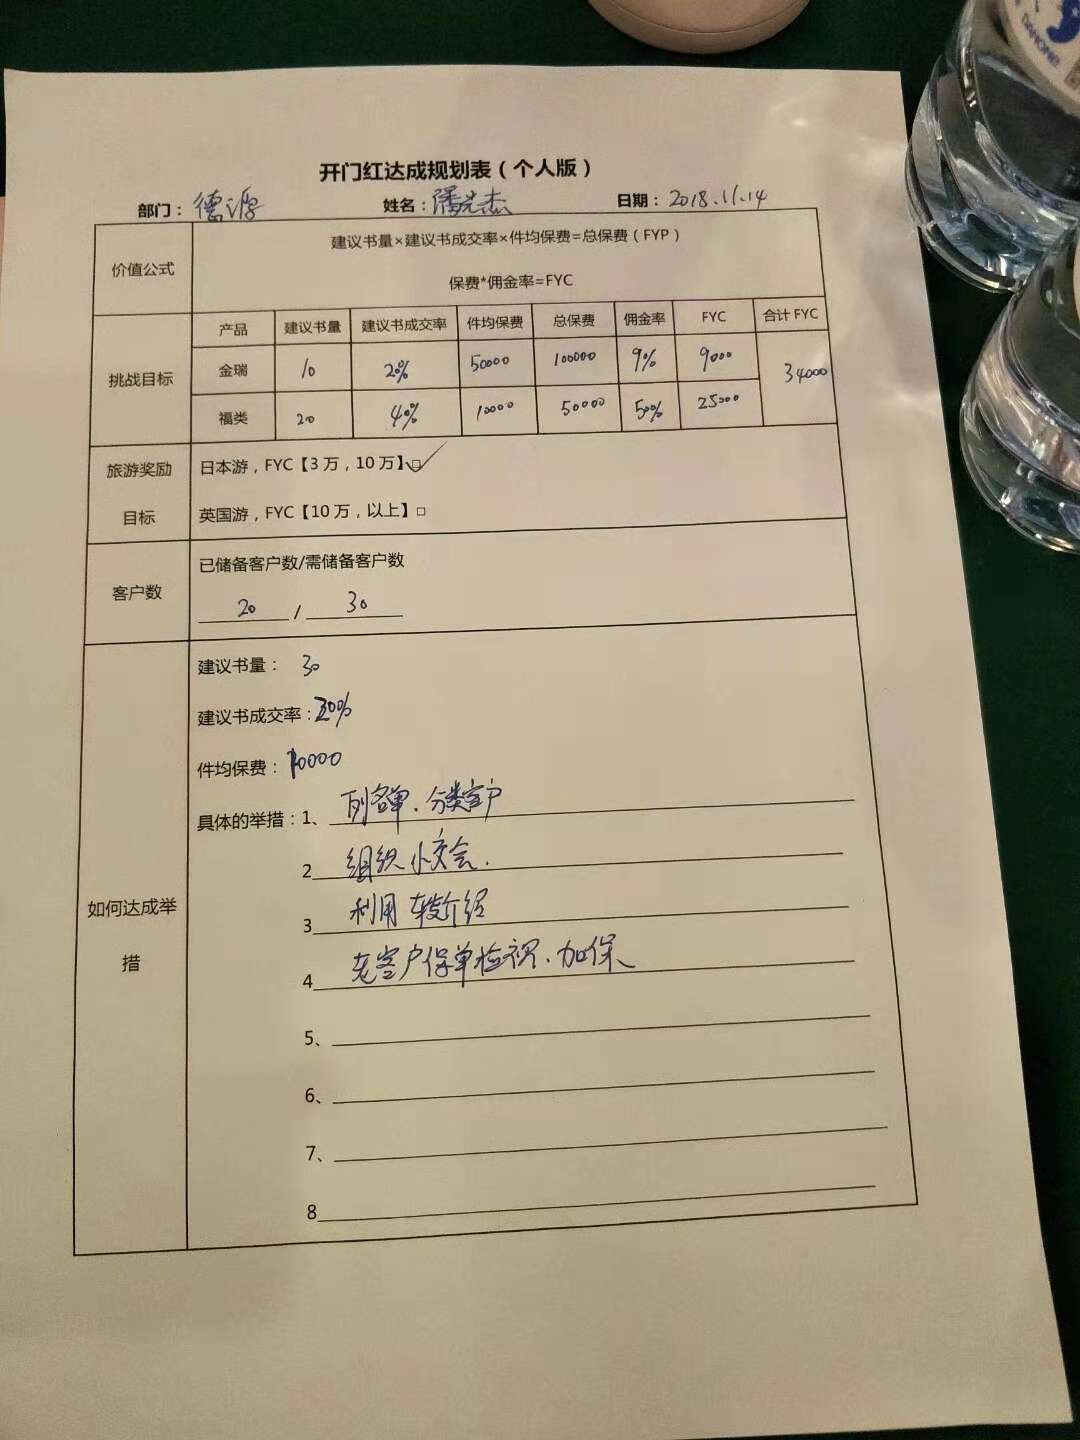 开门红达成规划表（个人版）
部门：德源 姓名：潘光杰 日期：2018.11.14
价值公式
建议书量×建议书成交率×件均保费=总保费（FYP）
保费*佣金率=FYC
挑战目标
产品 建议书量 建议书成交率 件均保费 总保费 佣金率 FYC 合计 FYC
金瑞 10 20% 50000 100000 9% 9000 34000
福类 20 40% 10000 50000 50% 25000
旅游奖励
目标
日本游，FYC【3 万，10 万】☑
英国游，FYC【10 万，以上】□
客户数
已储备客户数/需储备客户数
20 / 30
如何达成举
措
建议书量： 30
建议书成交率：30%
件均保费：10000
具体的举措：1、列名单．分类客户
2 组织小交会．
3 利用 转介绍
4 老客户保单检视．加保
5、
6、
7、
8
DANONE